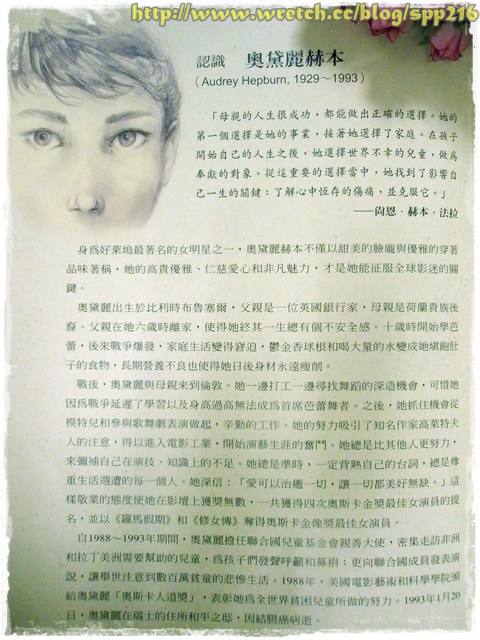 http://www.wretch.cc/blog/spp216
認識 奧黛麗赫本
(Audrey Hepburn, 1929～1993)
「母親的人生很成功，都能做出正確的選擇。她的
第一個選擇是她的事業，接著她選擇了家庭。在孩子
開始自己的人生之後，她選擇世界不幸的兒童，做為
奉獻的對象。從這重要的選擇當中，她找到了影響自
己一生的關鍵：了解心中恆存的傷痛，並克服它。」
——尚恩‧赫本‧法拉
身為好萊塢最著名的女明星之一，奧黛麗赫本不僅以甜美的臉龐與優雅的穿著
品味著稱，她的高貴優雅、仁慈愛心和非凡魅力，才是她能征服全球影迷的關
鍵。
奧黛麗出生於比利時布魯塞爾，父親是一位英國銀行家，母親是荷蘭貴族後
裔。父親在她六歲時離家，使得她終其一生總有個不安全感。十歲時開始學芭
蕾，後來戰爭爆發，家庭生活變得窘迫，鬱金香球根和喝大量的水變成她填飽肚
子的食物，長期營養不良也使得她日後身材永遠瘦削。
戰後，奧黛麗與母親來到倫敦。她一邊打工一邊尋找舞蹈的深造機會，可惜她
因為戰爭延遲了學習以及身高過高無法成為首席芭蕾舞者。之後，她抓住機會從
模特兒和參與歌舞劇表演做起，辛勤的工作。她的努力吸引了知名作家高萊特夫
人的注意，得以進入電影工業，開始演藝生涯的奮鬥。她總是比其他人更努力，
來彌補自己在演技、知識上的不足。她總是準時，一定背熟自己的台詞，總是尊
重生活週遭的每一個人。她深信：「愛可以治癒一切，讓一切都美好無缺。」這
樣敬業的態度使她在影壇上獲獎無數，一共獲得四次奧斯卡金獎最佳女演員的提
名，並以《羅馬假期》和《修女傳》奪得奧斯卡金像獎最佳女演員。
自1988～1993年期間，奧黛麗擔任聯合國兒童基金會親善大使，密集走訪非洲
和拉丁美洲需要幫助的兒童，為孩子們發聲呼籲和募捐；更向聯合國成員發表演
說，讓舉世注意到數百萬貧童的悲慘生活。1988年，美國電影藝術和科學學院頒
給奧黛麗「奧斯卡人道獎」，表彰她為全世界貧困兒童所做的努力。1993年1月20
日，奧黛麗在瑞士的住所和平之邸，因結腸癌病逝。